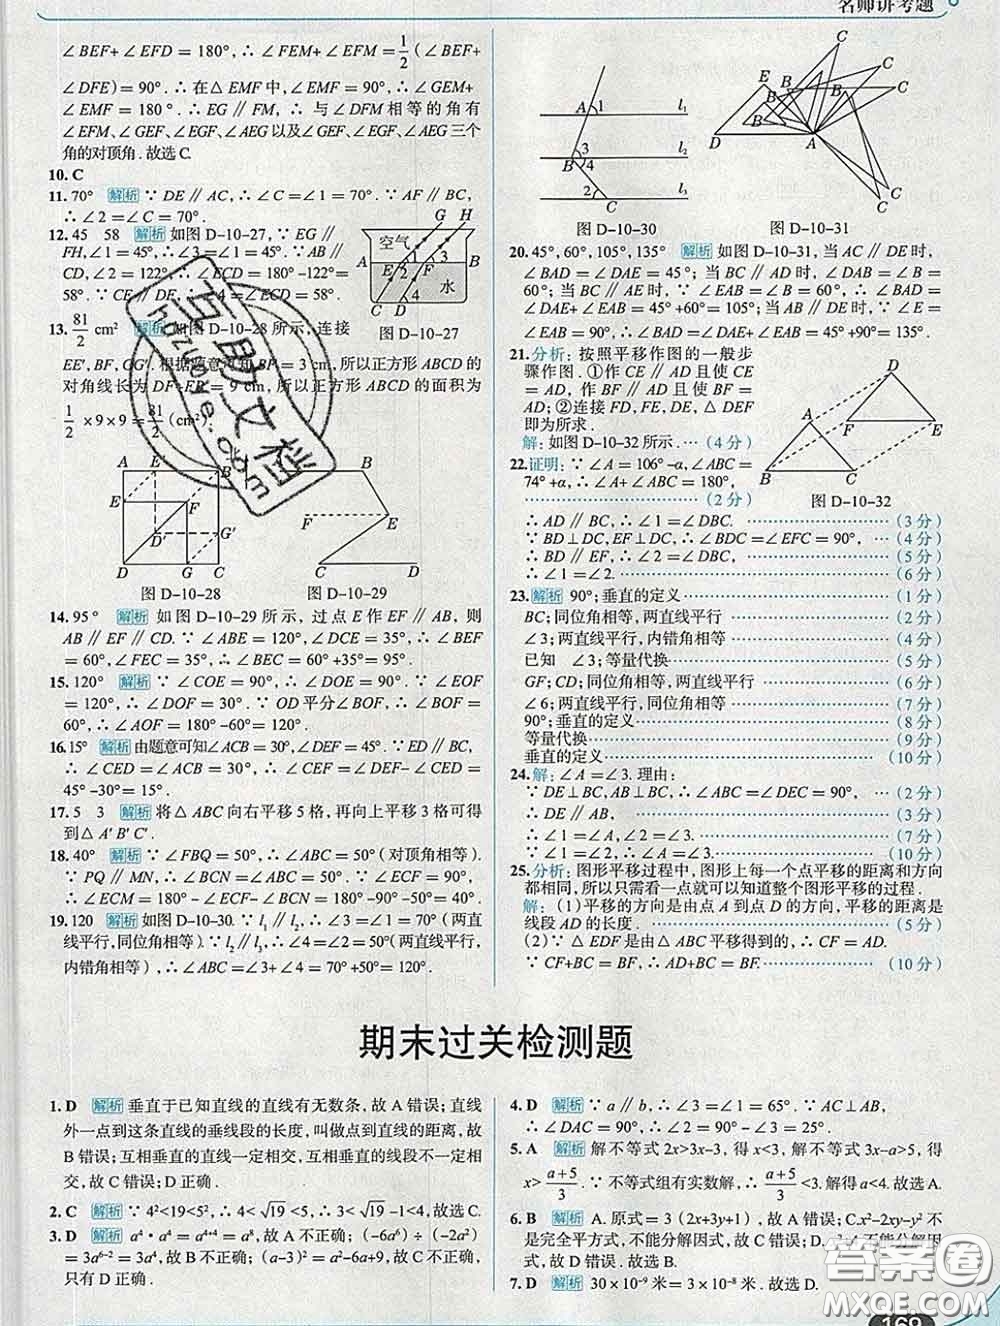 名师讲考题
∠BEF+∠EFD=180°,∴∠FEM+∠EFM=1/2(∠BEF+
∠DFE)=90°.∴在△EMF中,∠EMF=90°.∴∠GEM+
∠EMF=180°.∴EG∥FM,∴与∠DFM相等的角有
∠EFM,∠GEF,∠EGF,∠AEG以及∠GEF、∠EGF、∠AEG三个
角的对顶角.故选C.
10.C
11.70° 解析 ∵DE∥AC,∴∠C=∠1=70°.∵AF∥BC,
∴∠2=∠C=70°.
12.45 58 解析 如图D-10-27,∵EG∥
FH,∠1=45°,∴∠3=∠1=45°.∵AB∥
CD,∠2=122°,∴∠ECD=180°-122°=
58°.∵CE∥DF,∴∠4=∠ECD=58°.
空气
水
G H A E F B C D 1 2 3 4
图D-10-27
13.81/2 cm² 解析 如图D-10-28所示,连接
EE′,BF,GG′.根据题意可知BF=3 cm,所以正方形ABCD的
对角线长为DF+BF=9 cm,所以正方形ABCD的面积为
1/2×9×9=81/2(cm²).
A E′ B E F D′ G′ D G C
图D-10-28
B F E C
图D-10-29
14.95° 解析 如图D-10-29所示,过点E作EF∥AB,则
AB∥EF∥CD.∵∠ABE=120°,∠DCE=35°,∴∠BEF
=60°,∠FEC=35°,∴∠BEC=60°+35°=95°.
15.120° 解析 ∵∠COE=90°,∴∠DOE=90°.∵∠EOF
=120°,∴∠DOF=30°.∵OD平分∠BOF,∴∠BOF
=60°,∴∠AOF=180°-60°=120°.
16.15° 解析 由题意可知∠ACB=30°,∠DEF=45°.∵ED∥BC,
∴∠CED=∠ACB=30°,∴∠CEF=∠DEF-∠CED=
45°-30°=15°.
17.5 3 解析 将△ABC向右平移5格,再向上平移3格可得
到△A′B′C′.
18.40° 解析 ∵∠FBQ=50°,∴∠ABC=50°(对顶角相等).
∵PQ∥MN,∴∠BCN=∠ABC=50°.∵∠ECF=90°,
∴∠ECM=180°-∠ECF-∠BCN=180°-90°-50°=40°.
19.120 解析 如图D-10-30.∵l₁∥l₂,∴∠3=∠1=70°(两直
线平行,同位角相等).∵l₂∥l₃,∴∠4=∠2=50°(两直线平行,
内错角相等),∴∠ABC=∠3+∠4=70°+50°=120°.
A 1 l₁ 3 l₂ B 4 2 l₃ C
图D-10-30
E B B B B C C C C C D A
图D-10-31
20.45°,60°,105°,135° 解析 如图D-10-31,当AC∥DE时,
∠BAD=∠DAE=45°;当BC∥AD时,∠DAB=∠B=
60°;当BC∥AE时,∵∠EAB=∠B=60°,∴∠BAD=
∠DAE+∠EAB=45°+60°=105°;当AB∥DE时,∵∠E=
∠EAB=90°,∴∠BAD=∠DAE+∠EAB=45°+90°=135°.
21.分析:按照平移作图的一般步
骤作图.①作CE∥AD且使CE
=AD,作BF∥AD且使BF=
AD;②连接FD,FE,DE,△DEF
即为所求.
解:如图D-10-32所示.…(4分)
D A F E B C
图D-10-32
22.证明:∵∠A=106°-α,∠ABC=
74°+α,∴∠A+∠ABC=180°.
(2分)
∴AD∥BC,∴∠1=∠DBC. (3分)
∵BD⊥DC,EF⊥DC,∴∠BDC=∠EFC=90°, (4分)
∴BD∥EF,∴∠2=∠DBC, (5分)
∴∠1=∠2. (6分)
23.解析 90°;垂直的定义 (1分)
BC;同位角相等,两直线平行 (2分)
∠3;两直线平行,内错角相等 (4分)
已知 ∠3;等量代换 (5分)
GF;CD;同位角相等,两直线平行 (6分)
∠6;两直线平行,同位角相等 (7分)
90°;垂直的定义 (8分)
等量代换 (9分)
垂直的定义 (10分)
24.解:∠A=∠3.理由:
∵DE⊥BC,AB⊥BC,∴∠ABC=∠DEC=90°, (2分)
∴DE∥AB, (3分)
∴∠1=∠A,∠2=∠3. (7分)
∵∠1=∠2,∴∠A=∠3. (10分)
25.分析:图形平移过程中,图形上每一个点平移的距离和方向
都相同,所以只需看一点就可以知道整个图形平移的过程.
解:(1)平移的方向是由点A到点D的方向,平移的距离是
线段AD的长度. (5分)
(2)∵△EDF是由△ABC平移得到的,∴CF=AD.
∵CF+BC=BF,∴AD+BC=BF. (10分)
期末过关检测题
1.D 解析 垂直于已知直线的直线有无数条,故A错误;直线
外一点到这条直线的垂线段的长度,叫做点到直线的距离,故
B错误;互相垂直的直线一定相交,互相垂直的线段不一定相
交,故C错误;D正确.
2.C 解析 ∵4²<19<5²,∴4<√19<5,∴3<√19-1<4,故选C.
3.D 解析 a⁴·a⁴=a⁴⁺⁴=a⁸,故A不正确;(-6a⁶)÷(-2a²)
=3a⁶⁻²=3a⁴,故B不正确;(a-3)²=a²-6a+9,故C不正确,
只有D正确.
4.D 解析 ∵a∥b,∴∠ACB=∠1=65°.∵AC⊥AB,
∴∠DAC=90°.∴∠2=90°-∠3=25°.
5.A 解析 解不等式2x>3x-3,得x<3,解不等式3x-a>5,得
x>(a+5)/3.∵不等式组有实数解,∴(a+5)/3<3.解得a<4.故选A.
6.B 解析 A.原式=3(2x+3y+1),故A错误;C.x²-2xy-y²不
是完全平方式,不能分解因式,故C错误;D.不能分解因
式,故D错误.故选B.
7.D 解析 30×10⁻⁹米=3×10⁻⁸米.故选D.
互助文档
hdzuoye.com
答案圈
MXQE.COM
169